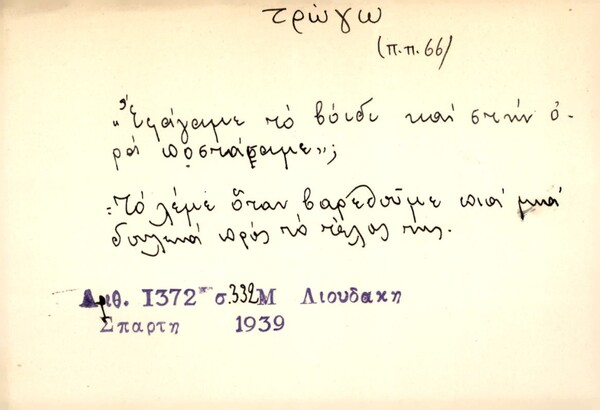 τρώγω
(π.π. 66)
"Ἐφάγαμε τὸ βόιδι καὶ στὴν ὀ-
ρὰ ποστάσαμε";
Τὸ λέμε ὅταν βαρεθοῦμε πιὰ μιὰ
δουλειὰ πρὸς τὸ τέλος της.
Αριθ. 1372 σ. 332 Μ Λιουδακη
Σπαρτη 1939